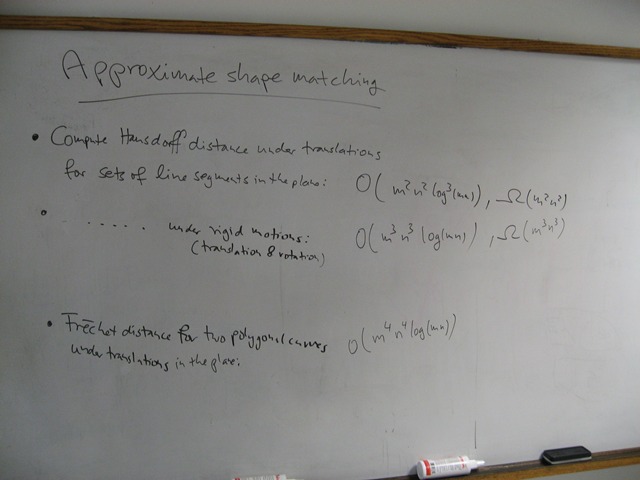 Approximate shape matching
• Compute Hausdorff distance under translations
for sets of line segments in the plane: O(m²n² log³(mn)), Ω(m²n²)
• ..... under rigid motions: O(m³n³ log(mn)), Ω(m³n³)
(translation & rotation)
• Fréchet distance for two polygonal curves O(m⁴n⁴ log(mn))
under translations in the plane: